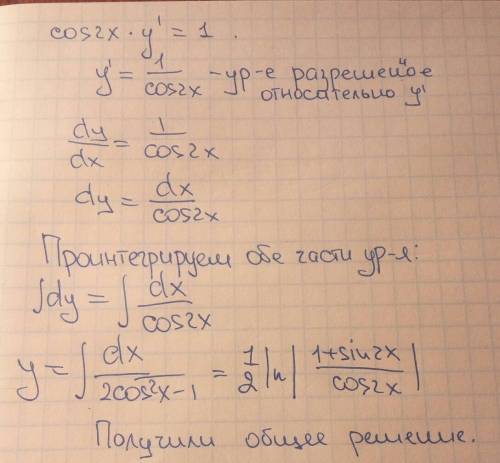 cos2x · y' = 1 .
y' = 1/cos2x - ур-е разрешеное
относательно y'
dy/dx = 1/cos2x
dy = dx/cos2x
Проинтегрируем обе части ур-я:
∫dy = ∫ dx/cos2x
y = ∫ dx/(2cos²x-1) = 1/2 ln | (1+sin2x)/cos2x |
Получили общее решение.